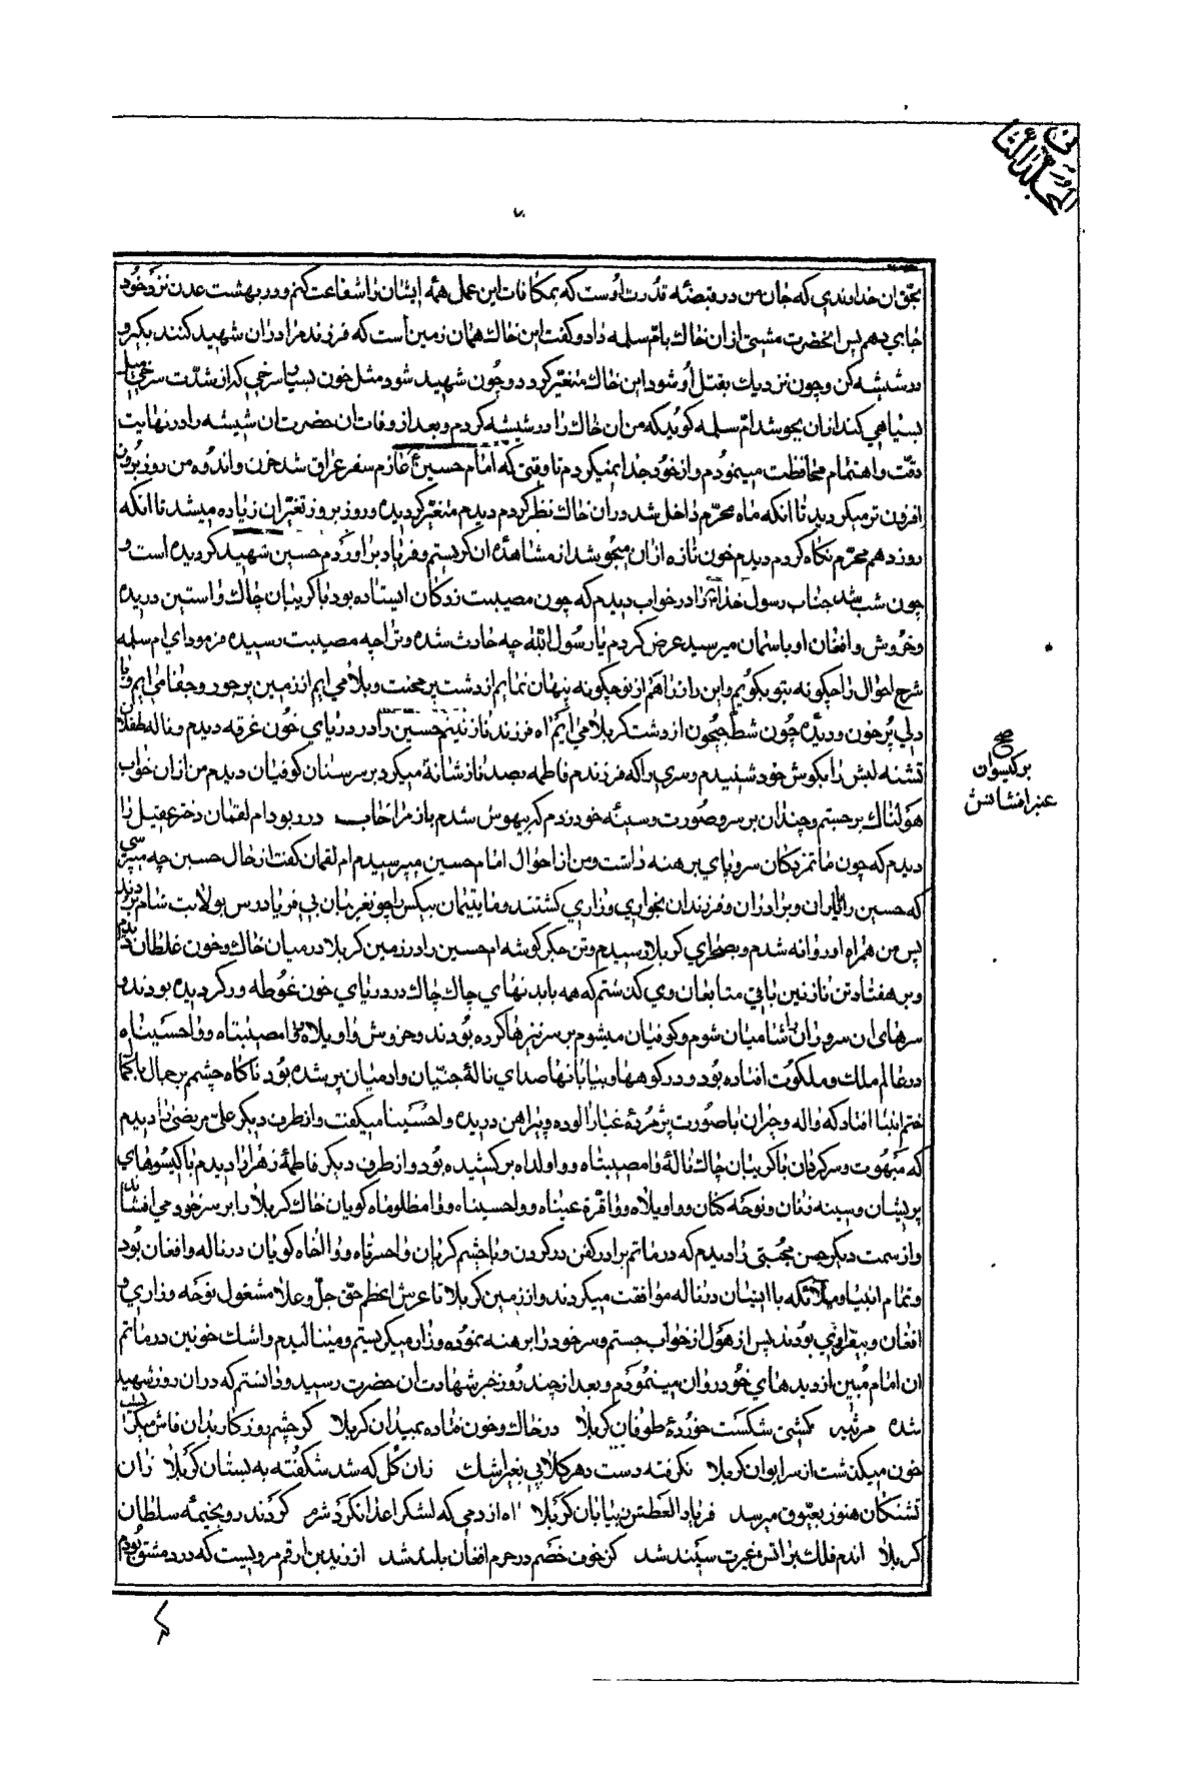 من
المجلد الثانی
۷
بحق ان خداوندی که جان من در قبضهٔ قدرت اوست که بمکافات این عمل همه ایشان را شفاعت کنم و در بهشت عدن نزد خود
جای دهم پس انحضرت مشتی از ان خاك بام سلمه داد و گفت این خاك همان زمین است که فرزند مرا در ان شهید کنند بگیر و
در شیشه کن و چون نزدیك بقتل او شود این خاك متغیر گردد و چون شهید شود مثل خون بسیار سرخی که از شدت سرخی میل
بسیاهی کند از ان بجوشد ام سلمه گوید که من ان خاك را در شیشه کردم و بعد از وفات ان حضرت ان شیشه را در نهایت
دقت و اهتمام محافظت مینمودم و از خود جدا نمیکردم تا وقتی که امام حسین ع عازم سفر عراق شد حزن و اندوه من روز بروز
افزون تر میگردید تا انکه ماه محرم داخل شد در ان خاك نظر کردم دیدم متغیر گردیده و روز بروز تغییر ان زیاده میشد تا انکه
روز دهم محرم نگاه کردم دیدم خون تازه از ان میجوشد از مشاهده ان گریستم و فریاد براوردم حسین شهید گردیده است و
چون شب شد جناب رسول خدا را در خواب دیدم که چون مصیبت زدگان ایستاده بود با گریبان چاك و استین دریده
و خروش و افغان او باسمان میرسید عرض کردم یا رسول الله چه حادث شده و ترا چه مصیبت رسیده فرمود ای ام سلمه
شرح احوال را چگونه بتو بگویم و این راز را هم از تو چگونه پنهان نمایم از دشت پر محنت و بلا می ایم از زمین پر جور و جفا می ایم و با
دلی پر خون و دیده چون شط جیحون از دشت کربلا می ایم اه فرزند نازنینم حسین را در دریای خون غرقه دیدم و ناله طفلان
تشنه لبش را بگوش خود شنیدم و سری را که فرزندم فاطمه بصد ناز شانه میکرد بر سر سنان کوفیان دیدم من از ان خواب
هولناك برجستم و چندان بر سر و صورت و سینهٔ خود زدم که بیهوش شدم باز مرا خاب در ربود ام لقمان دختر عقیل را
دیدم که چون ماتم زدگان سر و پای برهنه داشت و من از احوال امام حسین میپرسیدم ام لقمان گفت از حال حسین چه میپرسی
که حسین را با یاران و برادران و فرزندان بخواری و زاری کشتند و مابقیمان بیکس را چو غریبان بی فریادرس بولایت شام بردند
پس من همراه او روانه شدم و بصحرای کربلا رسیدم و تن جگر گوشه ام حسین را در زمین کربلا در میان خاك و خون غلطان دیدم
و بر هفتاد تن نازنین باقی متابعان وی گذشتم که همه با بدنهای چاك چاك در دریای خون غوطه ور گردیده بودند و
سرهای ان سروران را شامیان شوم و کوفیان میشوم بر سر نیزها کرده بودند و خروش واویلاه وامصیبتاه و واحسیناه
در عالم ملك و ملکوت افتاده بود و در کوهها و بیابانها صدای نالهٔ جنیان و ادمیان پر شده بود ناگاه چشمم بر جمال با کمال
ختم انبیا افتاد که واله و حیران با صورت پژمردهٔ غبار الوده و پیراهن دریده واحسینا میگفت و از طرف دیگر علی مرتضی را دیدم
که مبهوت و سرگردان با گریبان چاك نالهٔ وامصیبتاه و واولداه برکشیده بود و از طرف دیگر فاطمهٔ زهرا را دیدم با گیسوهای
پریشان و سینه زنان و نوحه کنان و واویلاه و واقرة عیناه و واحسیناه و وامظلوماه گویان خاك کربلا را بر سر خود می افشاند
صح
بر گیسوان
عنبر افشانش
و از سمت دیگر حسن مجتبی را دیدم که در ماتم برادر کفن در گردن و با چشم گریان واحسرتاه و والخاه گویان در ناله و افغان بود
و تمام انبیا و ملائکه با ایشان در ناله موافقت میکردند و از زمین کربلا تا عرش اعظم حق جل و علا مشغول نوحه و زاری و
افغان و بیقراری بودند پس از هول از خواب جستم و سر خود را برهنه نموده و زار میگریستم و مینالیدم و اشك خونین در ماتم
ان امام مبین از دیدهای خود روان مینمودم و بعد از چند روز خبر شهادت ان حضرت رسید و دانستم که در ان روز شهید
شده مرثیه کشتی شکست خوردهٔ طوفان کربلا در خاك و خون فتاده بمیدان کربلا گر چشم روزگار بر ان فاش میگریست
خون میگذشت از سر ایوان کربلا نگرفته دست دهر گلابی بغیر اشك زان گل که شد شکفته به بستان کربلا زان
تشنگان هنوز بعیوق میرسد فریاد العطش ز بیابان کربلا اه از دمی که لشکر اعدا نکرد شرم کردند رو بخیمهٔ سلطان
کربلا اندم فلك بر اتش غیرت سپند شد کز خوف خصم در حرم افغان بلند شد از زید بن ارقم مرویست که در دمشق بودم